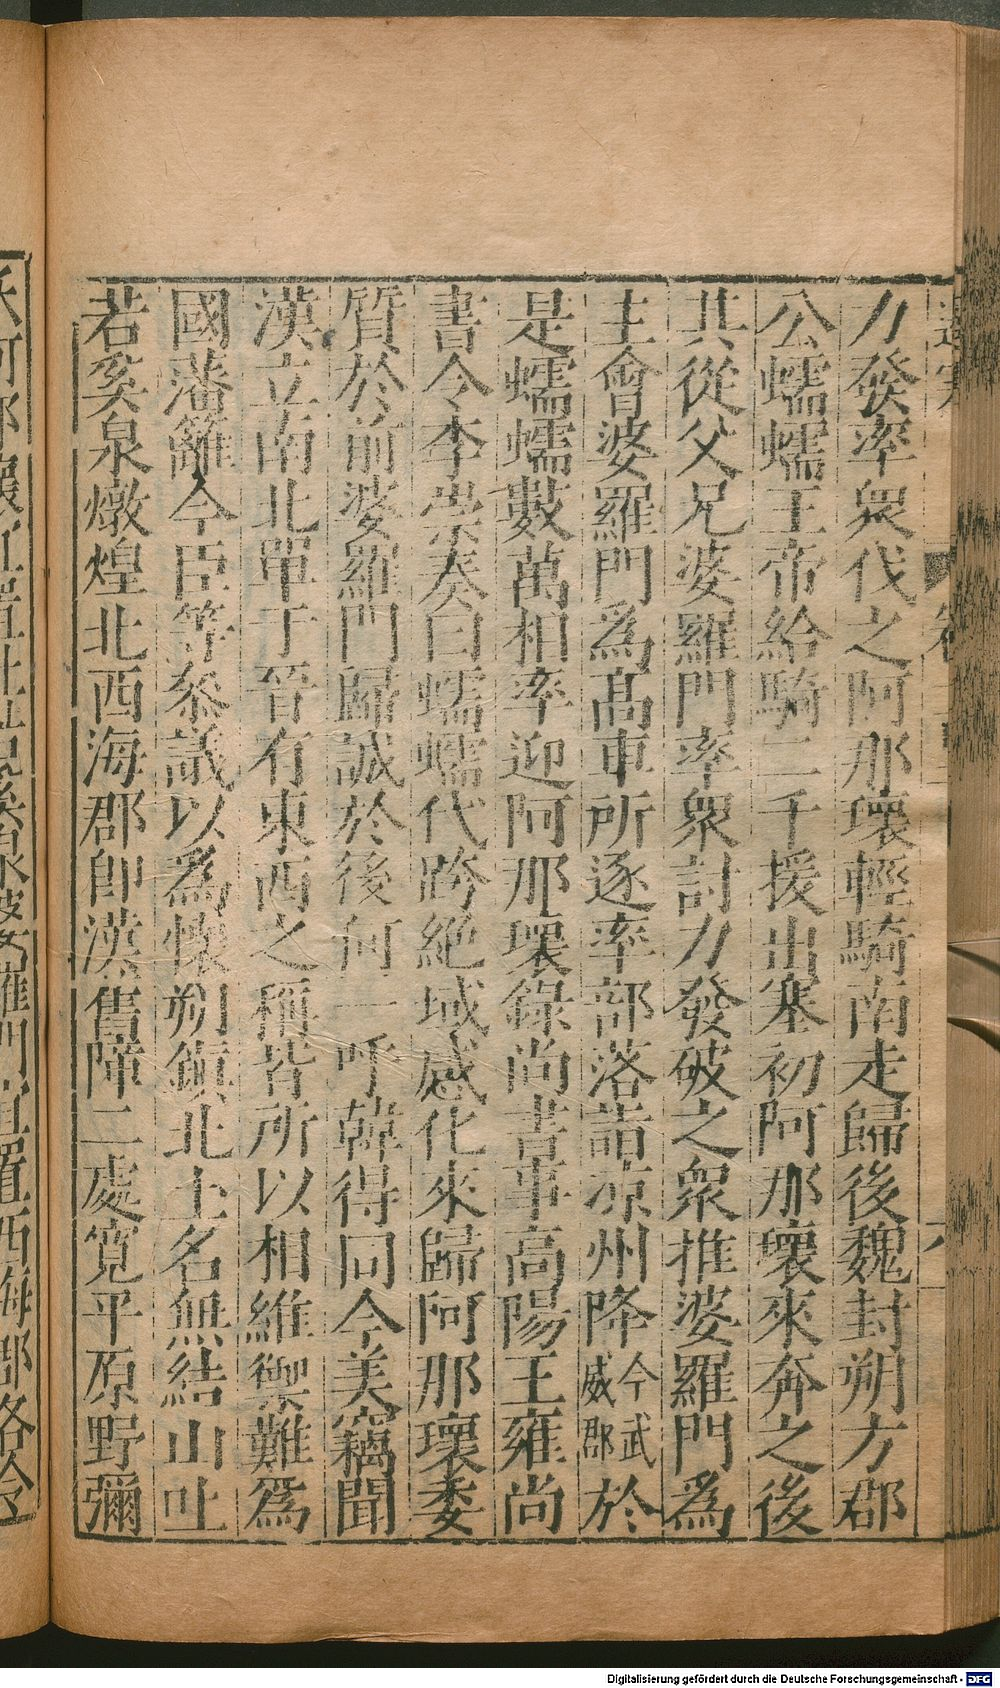 力發率衆伐之阿那壞輕騎南走歸後魏封朔方郡
公蠕蠕王帝給騎二千援出塞初阿那壞來奔之後
其從父兄婆羅門率衆討力發破之衆推婆羅門爲
主會婆羅門爲高車所逐率部落詣凉州降今武威郡於
是蠕蠕數萬相率迎阿那壞錄尚書事高陽王雍尚
書令李崇奏曰蠕蠕代跨絕域感化來歸阿那壞委
質於前婆羅門歸誠於後何一呼韓得同今美竊聞
漢立南北單于晉有東西之稱皆所以相維禦難爲
國藩籬今臣等叅議以爲懷朔鎮北土名無結山吐
若奚泉燉煌北西海郡卽漢舊障二處寬平原野彌
Digitalisierung gefördert durch die Deutsche Forschungsgemeinschaft - DFG